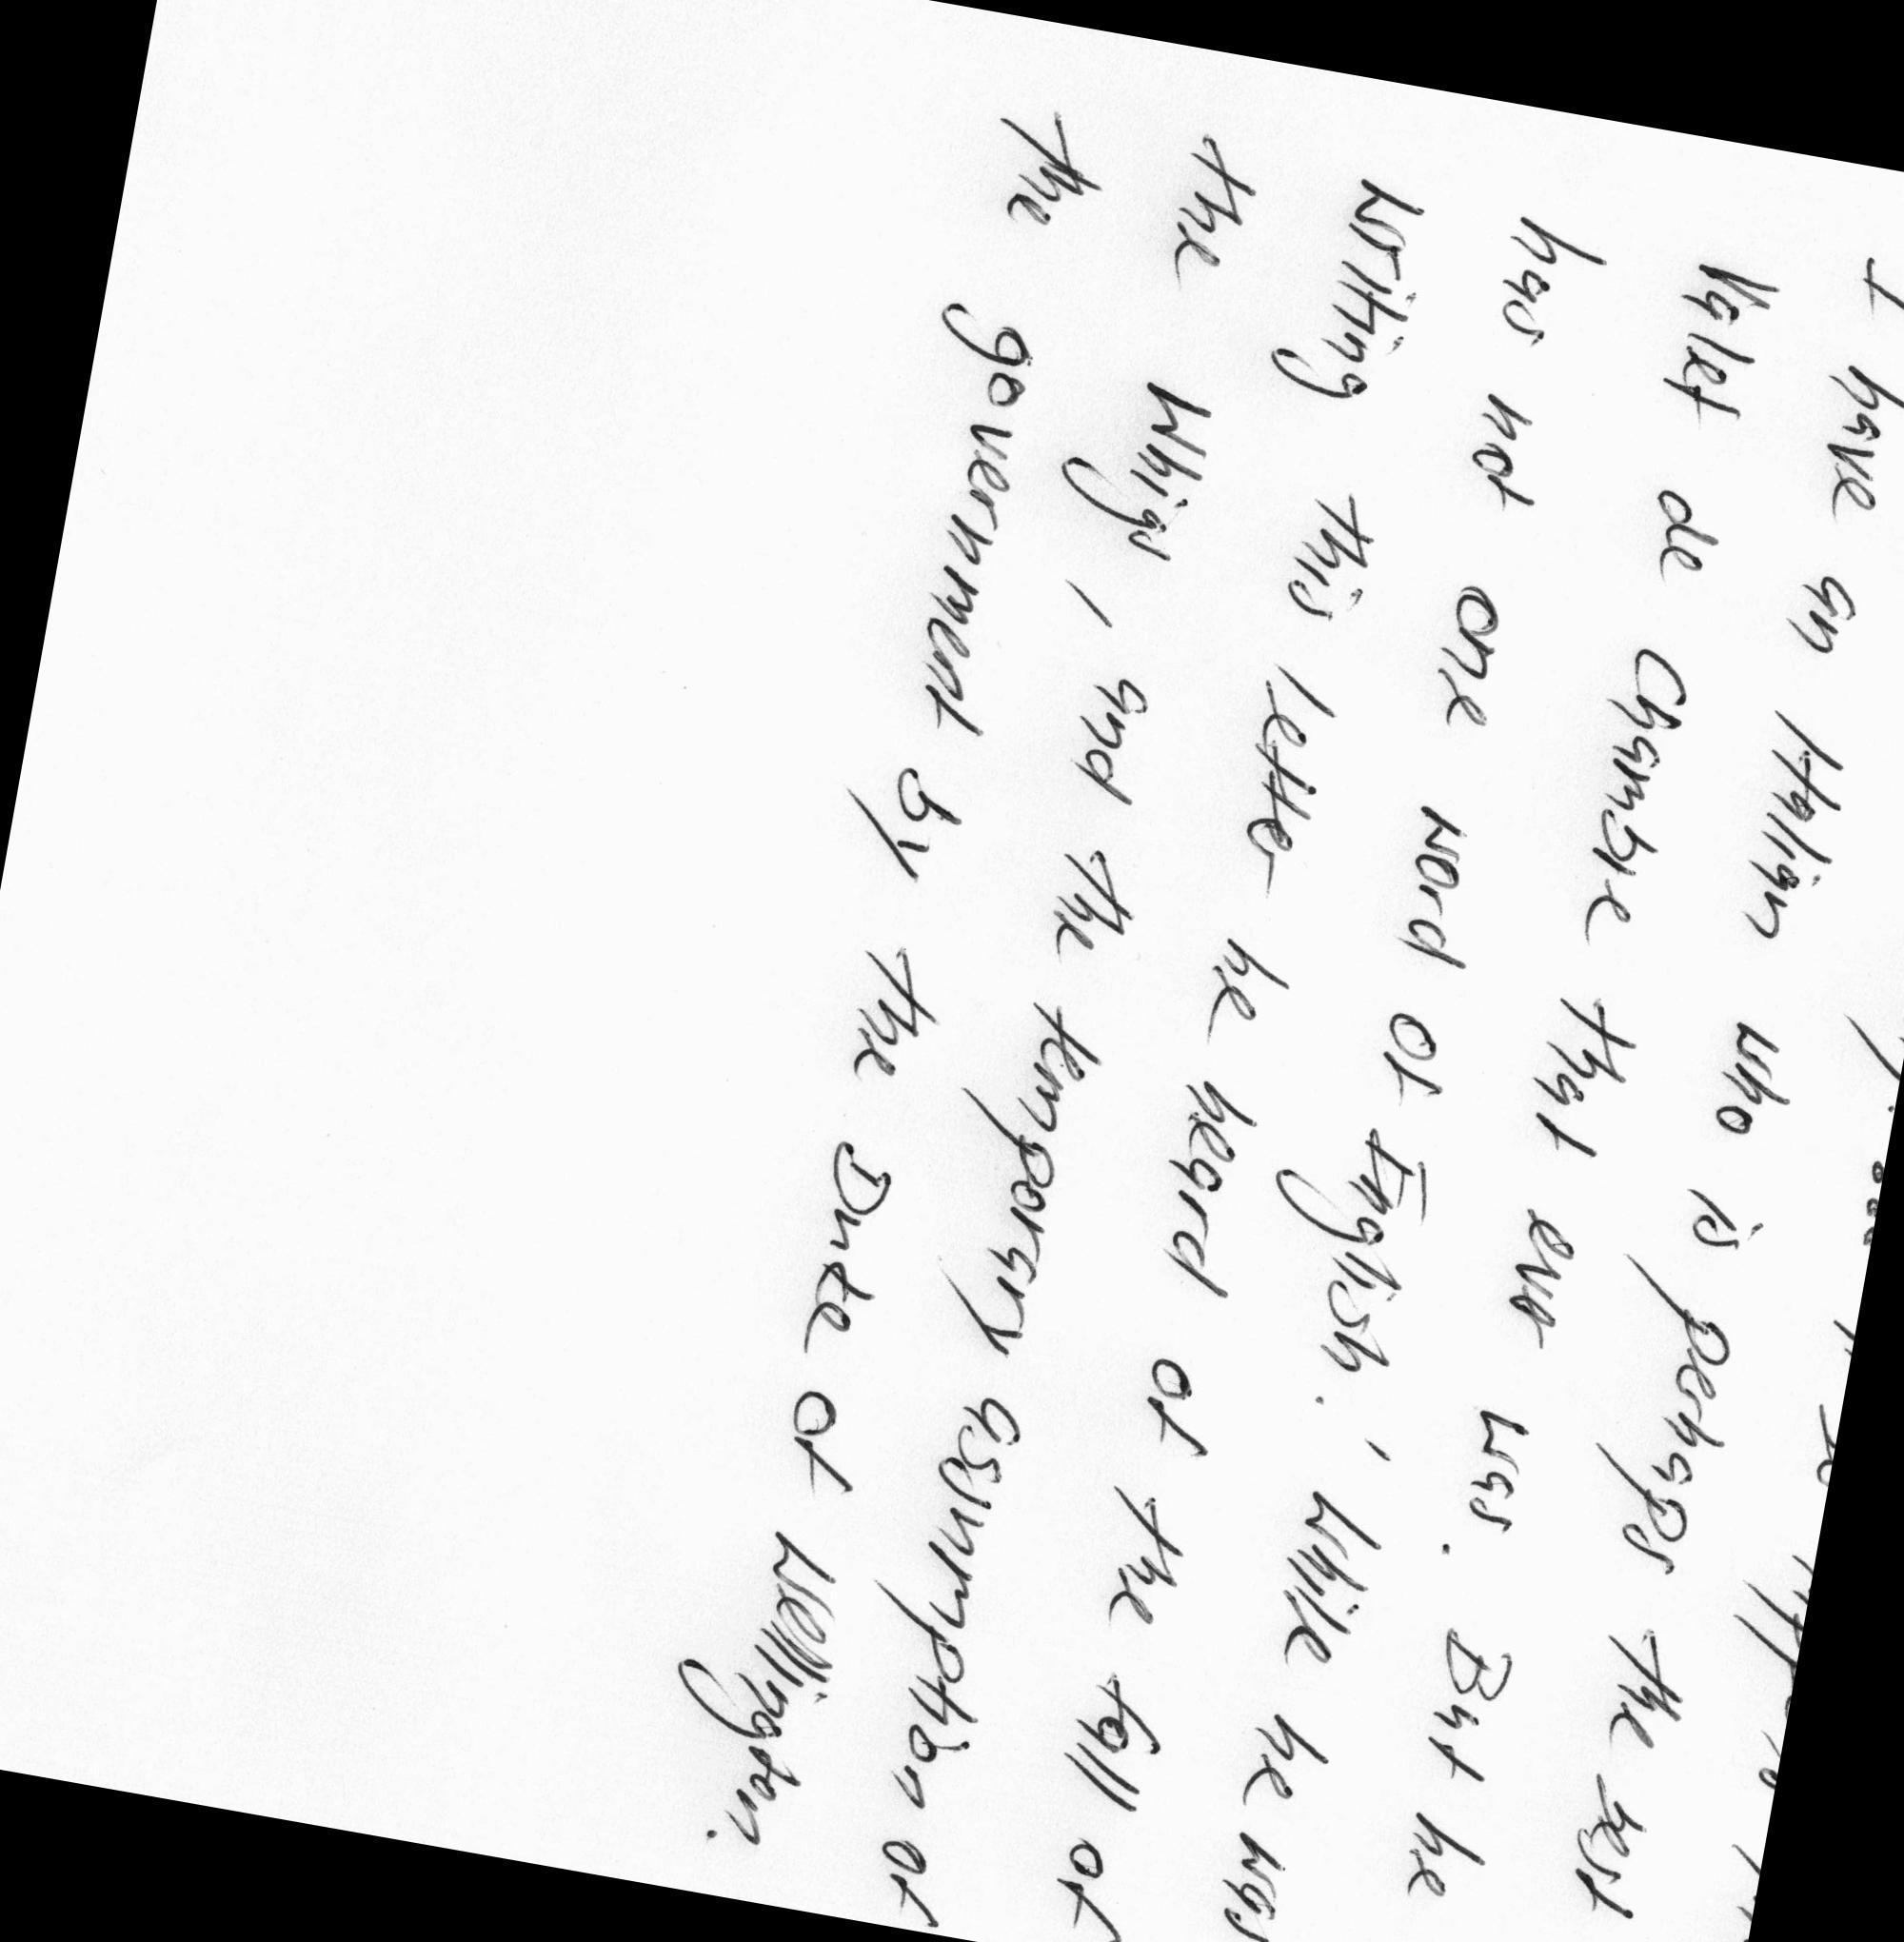 I have an Italian who is perhaps the best
Valet de Chambre that ever was. But he
has not one word of English.' While he was
writing this letter he heard of the fall of
the Whigs, and the temporary assumption of
the government by the Duke of Wellington.